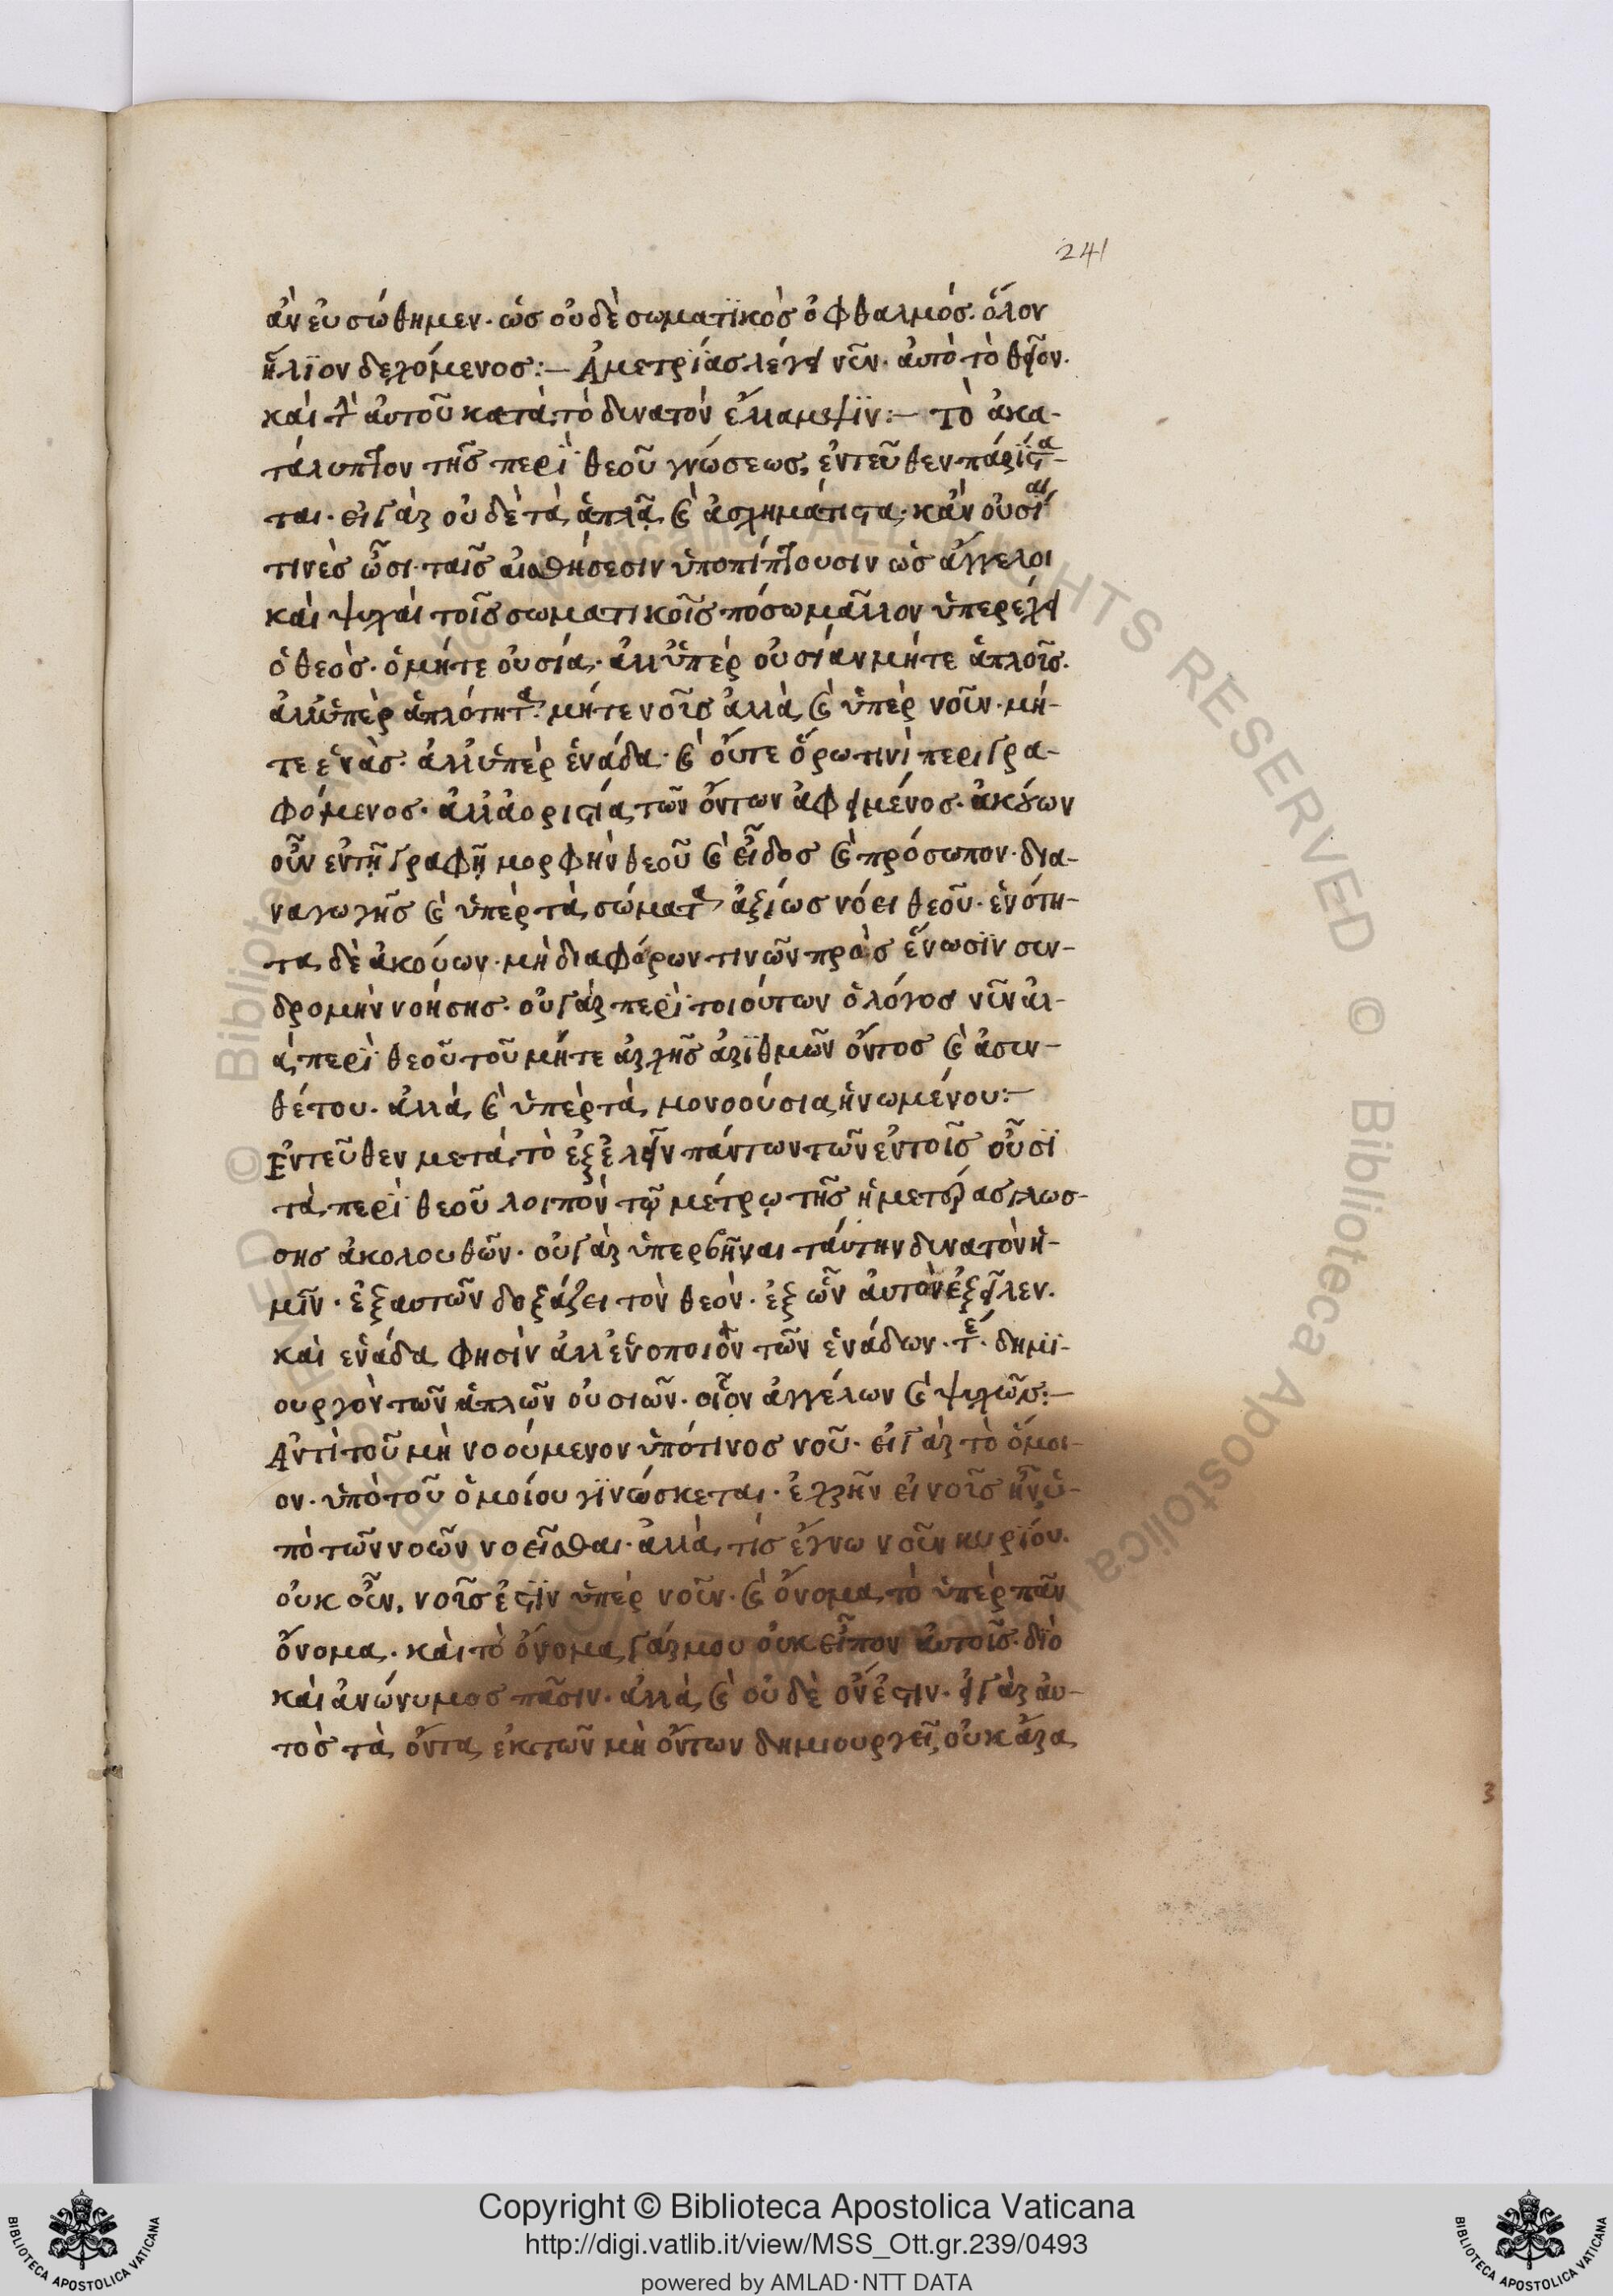 241
ἂν εὖ σωθῆμεν· ὡς οὐδὲ σωματϊκὸς ὀφθαλμός· ὅλον
ἥλϊον δεχόμενος:— Ἀμετρίας λέγει νῦν· αὐτὸ τὸ θεῖον·
καὶ τὴν αὐτοῦ κατὰ τὸ δυνατὸν ἔλλαμψϊν:— τὸ ἀκα-
τάλυπτον τῆς περὶ θεοῦ γνώσεως, ἐντεῦθεν παρίστα-
ται· εἰ γὰρ οὐδὲ τὰ ἁπλᾶ καὶ ἀσχημάτιστα· κἂν οὐσίαι
τινὲς ὦσι ταῖς αἰσθήσεσιν ὑποπίπτουσιν ὡς ἄγγελοι
καὶ ψυχαὶ τοῖς σωματικοῖς πόσω μᾶλλον ὑπερέχει
ὁ θεὸς· ὁ μήτε οὐσία· ἀλλ' ὑπὲρ οὐσίαν μήτε ἁπλοῦς·
ἀλλ' ὑπὲρ ἁπλότητα· μήτε νοῦς ἀλλὰ καὶ ὑπὲρ νοῦν· μή-
τε ἑνὰς· ἀλλ' ὑπὲρ ἑνάδα· καὶ οὔτε ὅρω τινὶ περιγρα-
φόμενος· ἀλλ' ἀοριστία τῶν ὄντων ἀφειμένος· ἀκούων
οὖν ἐν τῇ γραφῇ μορφὴν θεοῦ καὶ εἶδος καὶ πρόσωπον· δια-
ναγωγῆς καὶ ὑπὲρ τὰ σώματα ἀξίως νόει θεοῦ· ἑνότη-
τα δὲ ἀκούων· μὴ διαφόρων τινῶν πρὸς ἕνωσϊν συν-
δρομὴν νοήσης· οὐ γὰρ περὶ τοιούτων ὁ λόγος νῦν ἀλ-
ὰ περὶ θεοῦ τοῦ μήτε ἀρχῆς ἀρϊθμῶν ὄντος καὶ ἀσυν-
θέτου· ἀλλὰ καὶ ὑπὲρ τὰ μονοούσια ἡνωμένου:—
Ἐντεῦθεν μετὰ τὸ ἐξελεῖν πάντων τῶν ἐν τοῖς οὖσϊ
τὰ περὶ θεοῦ λοιπὸν τῷ μέτρῳ τῆς ἡμετέρας γλώσ-
σης ἀκολουθῶν· οὐ γὰρ ὑπερβῆναι ταύτην δυνατὸν ἡ-
μῖν· ἐξ αυτῶν δοξάζει τὸν θεὸν· ἐξ ὧν αὐτὸν ἐξεῖλεν·
καὶ ἑνάδα φησὶν ἀλλ' ἑνοποιὸν τῶν ἑνάδων· τε· δημϊ-
ουργὸν τῶν ἁπλῶν οὐσιῶν· οἷον ἀγγέλων καὶ ψυχῶν:—
Ἀντὶ τοῦ μὴ νοούμενον ὑπό τινος νοῦ· εἰ γὰρ τὸ ὅμοι-
ον· ὑπὸ τοῦ ὁμοίου γϊνώσκεται· ἐχρῆν εἰ νοῦς ἦν ὑ-
πὸ τῶν νοῶν νοεῖσθαι· ἀλλὰ τίς ἔγνω νοῦν κυρίου·
οὐκοῦν, νοῦς ἐστὶν ὑπὲρ νοῦν· καὶ ὄνομα τὸ ὑπὲρ πᾶν
ὄνομα· καὶ τὸ ὄνομα γάρ μου οὐκ εἶπον αὐτοῖς· δϊὸ
καὶ ἀνώνυμος πᾶσιν· ἀλλὰ καὶ οὐδὲ ὄν ἐστιν· εἰ γὰρ αὐ-
τὸς τὰ ὄντα ἐκ τῶν μὴ ὄντων δημιουργεῖ, οὐκ ἄρα
3
Copyright © Biblioteca Apostolica Vaticana
http://digi.vatlib.it/view/MSS_Ott.gr.239/0493
powered by AMLAD·NTT DATA
BIBLIOTECA APOSTOLICA VATICANA
BIBLIOTECA APOSTOLICA VATICANA